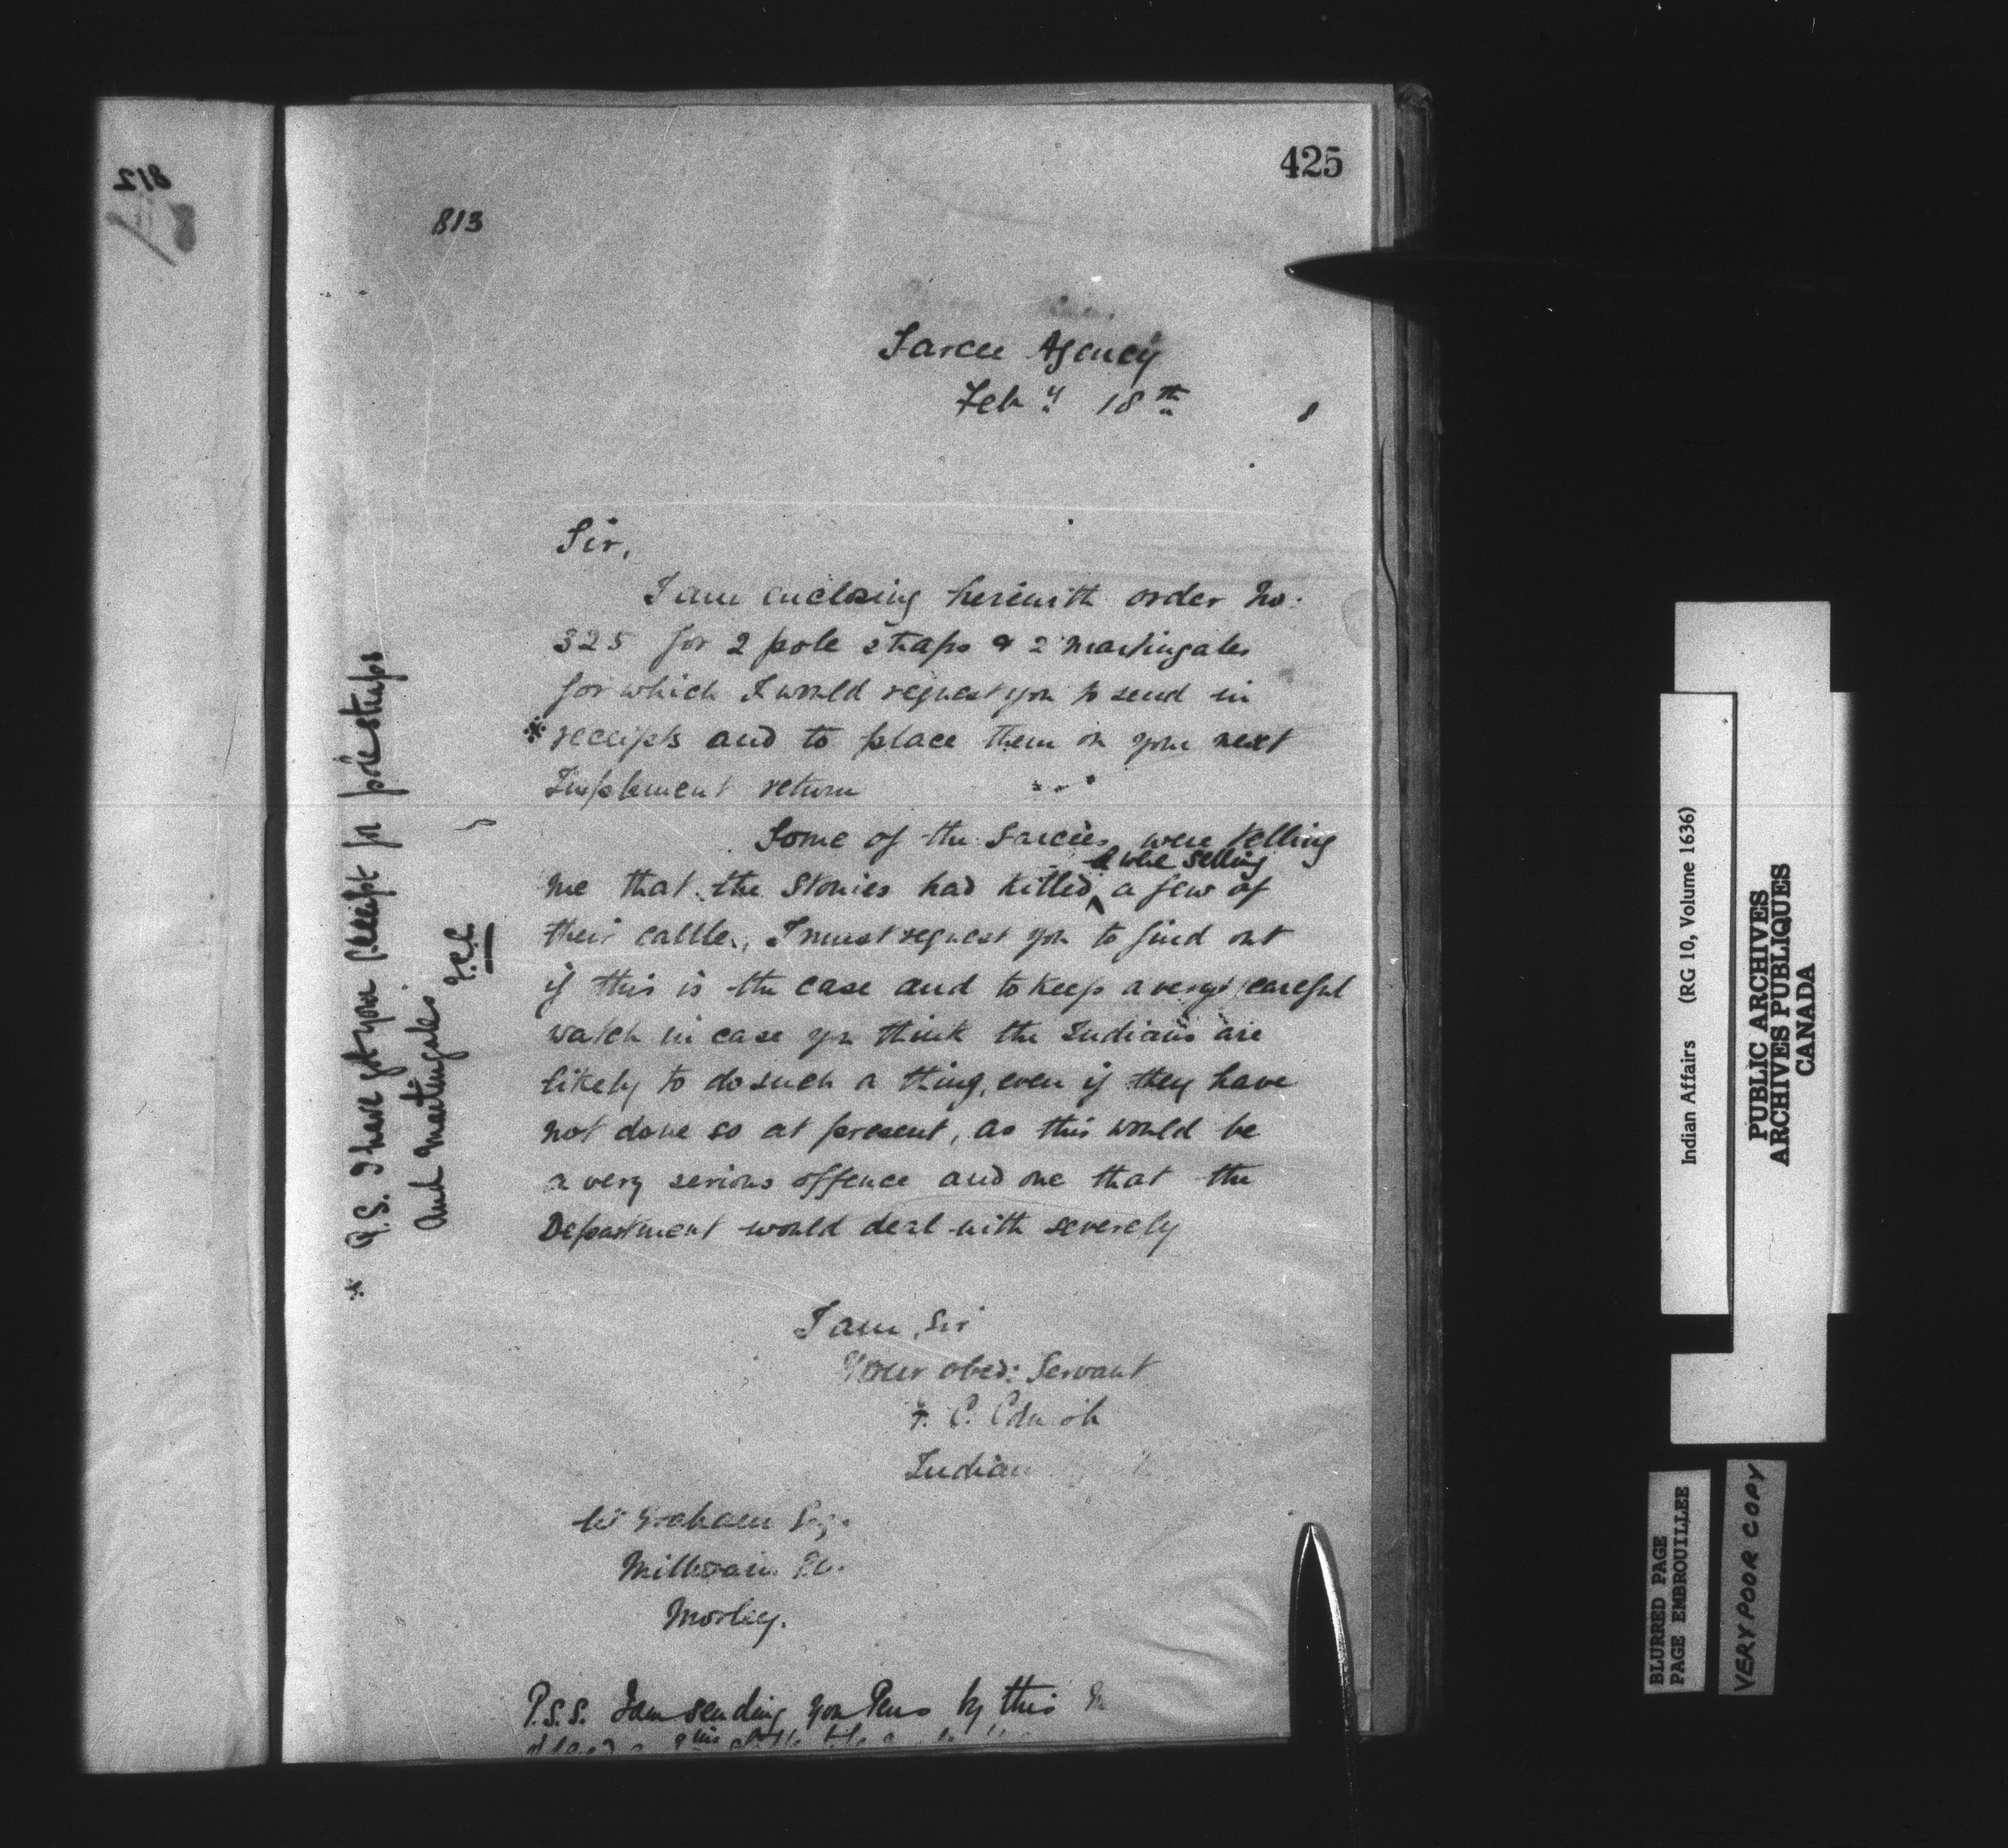 812
425
813
Sarcee Agency
Feby 18th 8
Sir,
I am enclosing herewith order No.
325 for 2 pole straps & 2 martingales
for which I would request you to send in
* receipts and to place them on your next
Implement return
Some of the Sarcees were telling
& were selling
me that the Stonies had killed ^ a few of
their cattle, I must request you to find out
if this is the case and to keep a very careful
watch in case you think the Indians are
likely to do such a thing, even if they have
not done so at present, as this would be
a very serious offence and one that the
Department would deal with severely
I am, Sir
Your obed: Servant
F. C. Cornish
Indian
Graham Esq.
Morley.
P.S.S. I am sending you Pens by this
* P.S. I have got your receipt for pole straps
and martingales
F.C.C.
Indian Affairs (RG 10, Volume 1636)
PUBLIC ARCHIVES
ARCHIVES PUBLIQUES
CANADA
BLURRED PAGE
PAGE EMBROUILLEE
VERY POOR COPY